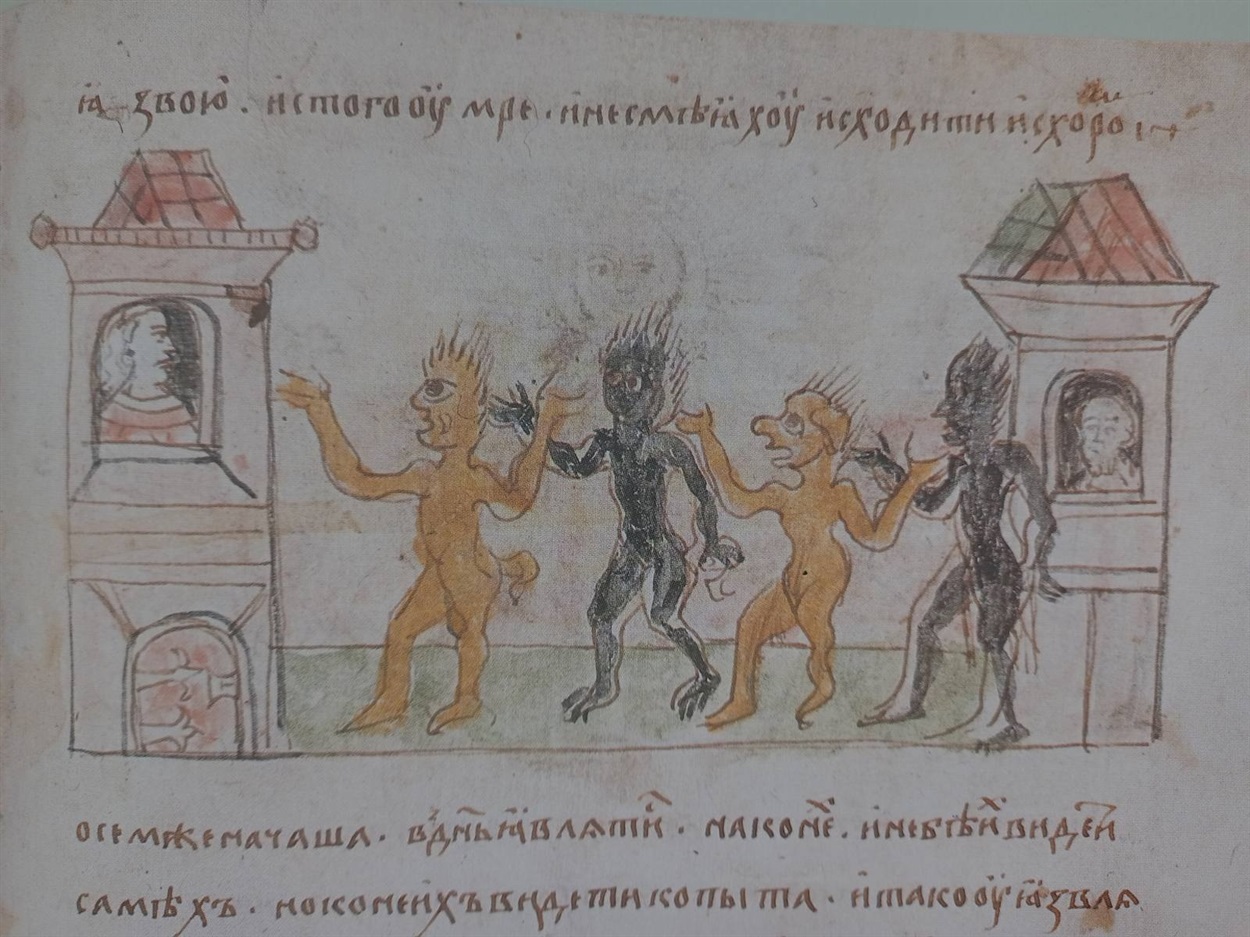 ꙗзвою҆. и҆стогооу҆мре · инесмѣꙗхоу҆ исходитиисхоро
осемженачаша · вд҃н҃ьꙗ҆влятиⷭ҇ · наконеⷯ · инебѣиⷯвидети
самѣхъ · нокѡнеи҆хъвидетикопыта · и҆такооу҆ꙗ҆звля